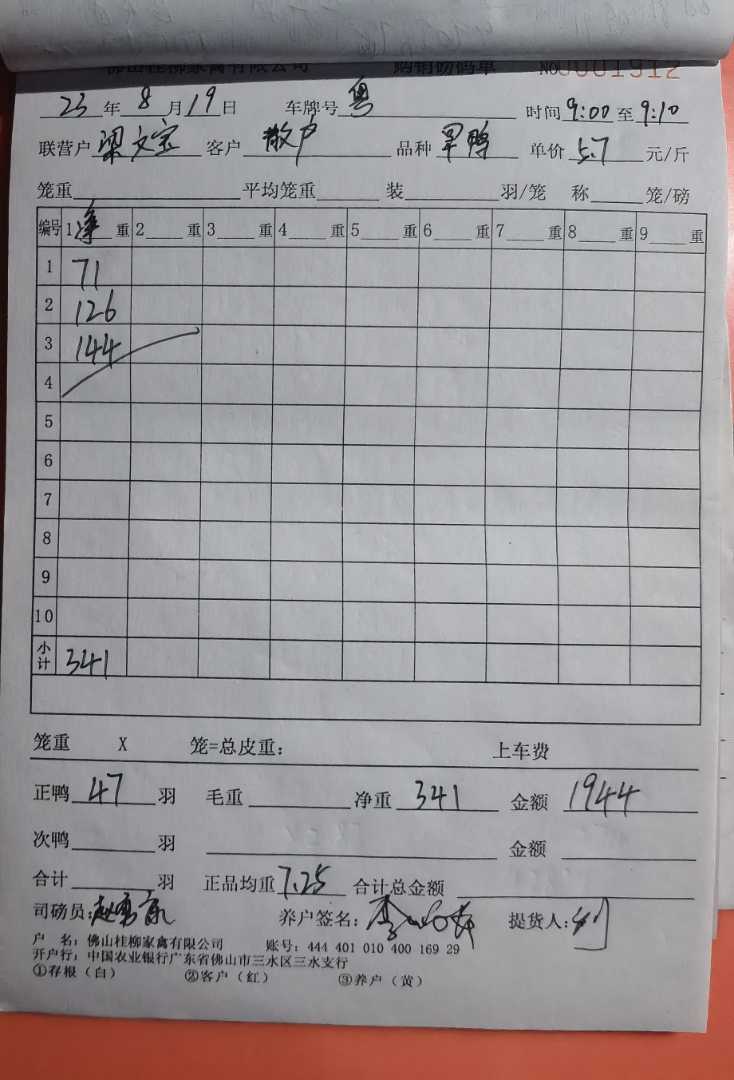 佛山桂柳家禽有限公司 购销磅码单 NO0001912
23年8月19日 车牌号粤 时间9:00至9:10
联营户梁文宝 客户散户 品种 单价5.7元/斤
笼重 平均笼重 装 羽/笼 称 笼/磅
编号 1净重 2 重 3 重 4 重 5 重 6 重 7 重 8 重 9 重
1 71
2 126
3 144
4
5
6
7
8
9
10
小计 341
笼重 X 笼=总皮重: 上车费
正鸭47羽 毛重 净重341 金额1944
次鸭 羽 金额
合计 羽 正品均重7.25 合计总金额
司磅员: 养户签名: 提货人:
户 名: 佛山桂柳家禽有限公司 账号: 444 401 010 400 169 29
开户行: 中国农业银行广东省佛山市三水区三水支行
①存根(白) ②客户(红) ③养户(黄)